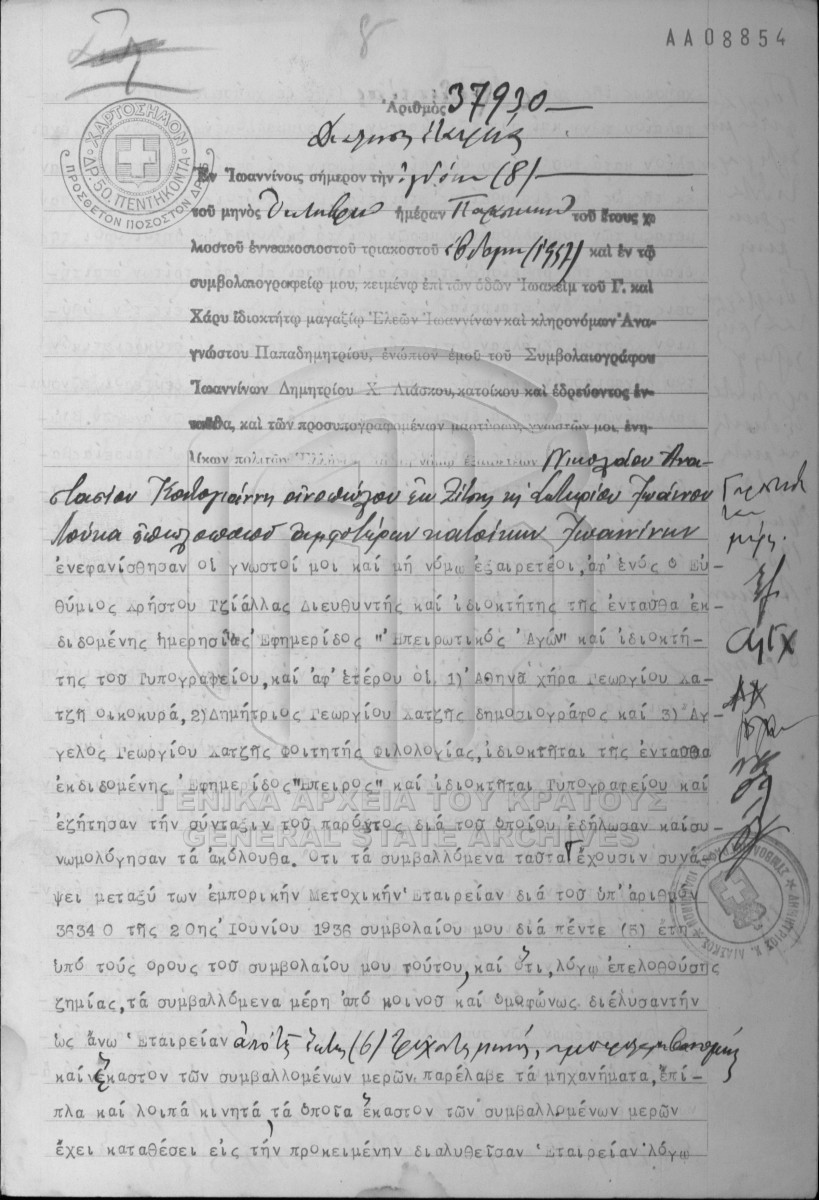 ΑΑ08854
8
Ἀριθμὸς 37930
Διάλυσις Ἑταιρείας
ΧΑΡΤΟΣΗΜΟΝ
ΔΡ. 50. ΠΕΝΤΗΚΟΝΤΑ
ΠΡΟΣΘΕΤΟΝ ΠΟΣΟΣΤΟΝ ΔΡΧ 5
Ἐν Ἰωαννίνοις σήμερον τὴν ὀγδόην (8)
τοῦ μηνὸς Ὀκτωβρίου ἡμέραν Παρασκευὴν τοῦ ἔτους χι
λιοστοῦ ἐννεακοσιοστοῦ τριακοστοῦ ἑβδόμου (1937) καὶ ἐν τῷ
συμβολαιογραφείῳ μου, κειμένῳ ἐπὶ τῶν ὁδῶν Ἰωακεὶμ τοῦ Γ. καὶ
Χάρυ ἰδιοκτήτῳ μαγαζίῳ Ἐλεῶν Ἰωαννίνων καὶ κληρονόμων Ἀνα-
γνώστου Παπαδημητρίου, ἐνώπιον ἐμοῦ τοῦ Συμβολαιογράφου
Ἰωαννίνων Δημητρίου Χ. Λιάσκου, κατοίκου καὶ ἑδρεύοντος ἐν-
ταῦθα, καὶ τῶν προσυπογραφομένων μαρτύρων, γνωστῶν μοι, ἐνη-
λίκων πολιτῶν Ἑλλήνων Νικολάου Ανα-
στασίου Κατσιγιάννη οἰνοπώλου ἐκ Ζίτσης κ Σωτηρίου Ἰωάννου
Λούκα ἀμφοτέρων κατοίκων Ἰωαννίνων
ἐνεφανίσθησαν οἱ γνωστοί μοι καί μή νόμῳ ἐξαιρετέοι, ἀφ' ἑνός ὁ Εὐ-
θύμιος Χρήστου Τζιάλλας Διευθυντής καί ἰδιοκτήτης τῆς ἐνταῦθα ἐκ
διδομένης ἡμερησίας Ἐφημερίδος "Ἠπειρωτικός Ἀγών" καί ἰδιοκτή-
της τοῦ Τυπογραφείου, καί ἀφ' ἑτέρου οἱ 1) Ἀθηνᾶ χήρα Γεωργίου Χα-
τζῆ οικοκυρά, 2) Δημήτριος Γεωργίου Χατζῆς δημοσιογράφος καί 3) Ἀγ
γελος Γεωργίου Χατζῆς Φοιτητής Φιλολογίας, ἰδιοκτῆται τῆς ἐνταῦθα
ἐκδιδομένης Ἐφημερίδος "Ἤπειρος" καί ἰδιοκτῆται Τυπογραφείου καί
ἐζήτησαν τήν σύνταξιν τοῦ παρόντος διά τοῦ ὁποίου ἐδήλωσαν καί συ-
νωμολόγησαν τά ἀκόλουθα. Οτι τά συμβαλλόμενα ταῦτα ἔχουσιν συνά-
ψει μεταξύ των ἐμπορικήν Μετοχικήν Ἑταιρείαν διά τοῦ ὑπ' ἀριθμόν
36340 τῆς 20ης Ἰουνίου 1936 συμβολαίου μου διά πέντε (5) ἔτη
ὑπό τούς ορους τοῦ συμβολαίου μου τούτου, καί ὅτι, λόγῳ ἐπελθούσης
ζημίας, τά συμβαλλόμενα μέρη ἀπό κοινοῦ καί ὁμοφώνως διέλυσαν τήν
ὡς ἄνω Ἑταιρείαν ἀπὸ τῆς ἕκτης (6) τρέχοντος μηνός,
καί ἕκαστον τῶν συμβαλλομένων μερῶν παρέλαβε τά μηχανήματα, ἔπι-
πλα καί λοιπά κινητά, τά ὁποῖα ἕκαστον τῶν συμβαλλομένων μερῶν
ἔχει καταθέσει εἰς τήν προκειμένην διαλυθεῖσαν Ἑταιρείαν λόγῳ
ΓΕΝΙΚΑ ΑΡΧΕΙΑ ΤΟΥ ΚΡΑΤΟΥΣ
GENERAL STATE ARCHIVES